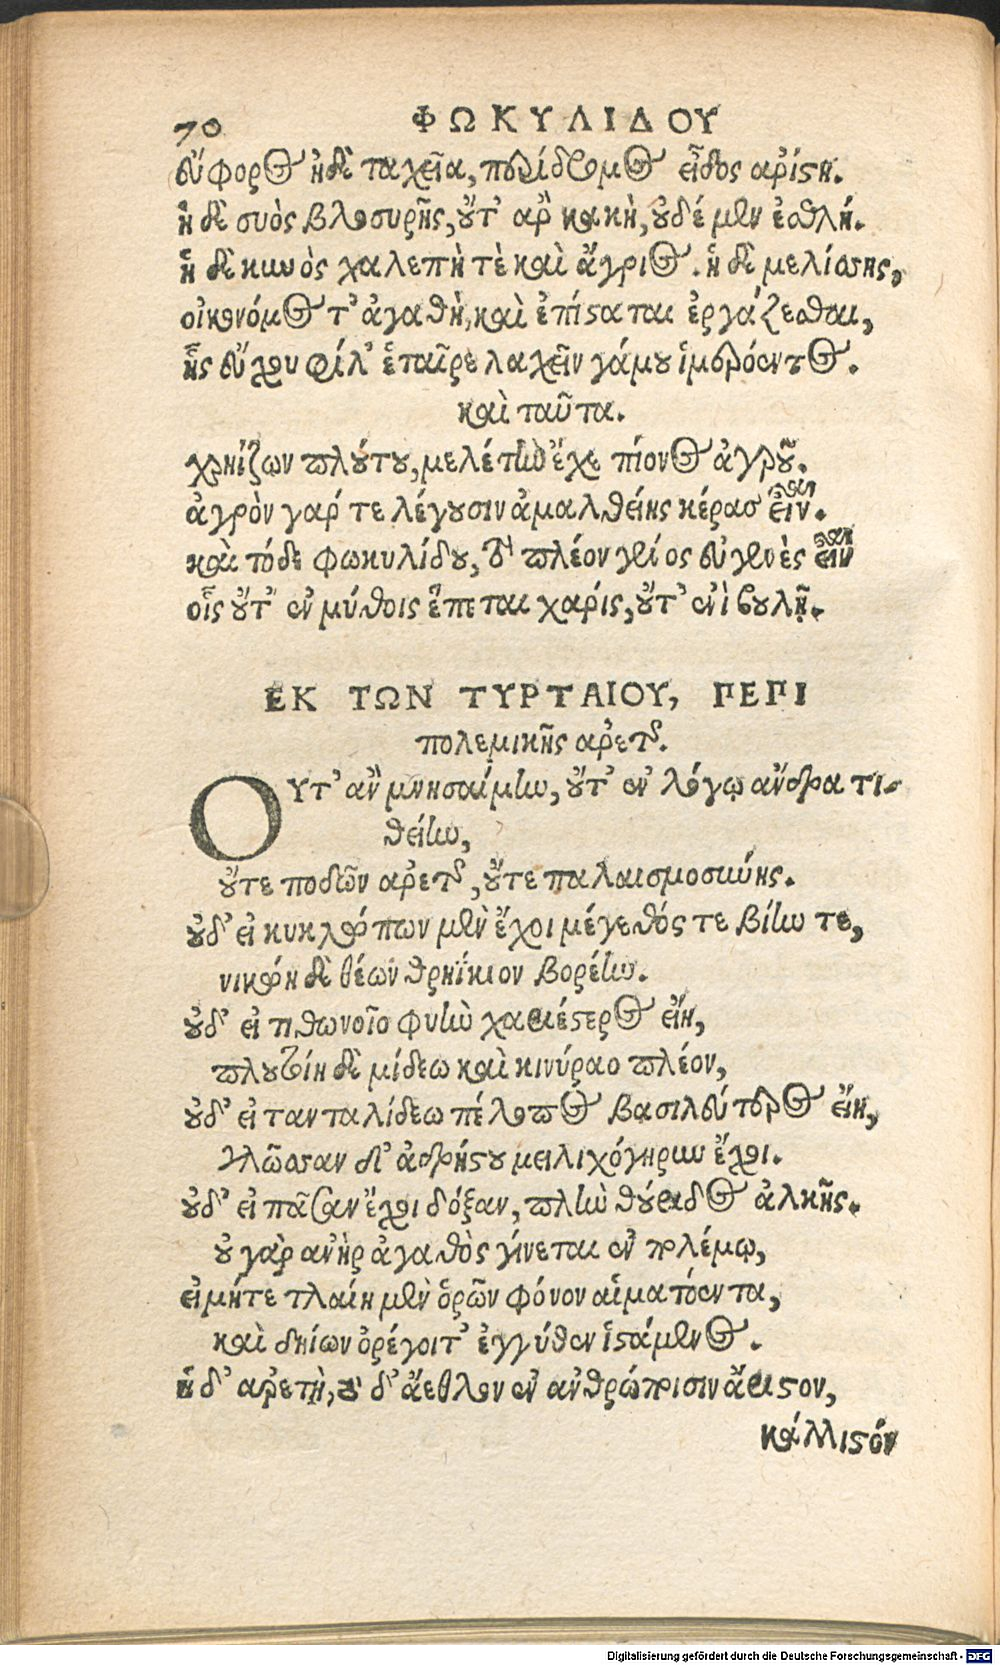 70 ΦΩΚΥΛΙΔΟΥ
εὔφορος ἠδὲ ταχεῖα, περίδρομος εἶδος αρίστη.
ἡ δὲ συὸς βλοσυρῆς, οὔτ' αρ κακὴ, οὐδέ μὲν ἐσθλή.
ἡ δὲ κυνὸς χαλεπὴ τὲ καὶ ἄγριος. ἡ δὲ μελίσσης,
οἰκονόμος τ' ἀγαθὴ, καὶ ἐπίσταται ἐργάζεσθαι,
ἧς εὔχου φίλ' ἑταῖρε λαχεῖν γάμου ἱμερόεντος.
καὶ ταῦτα.
χρηΐζων πλούτου, μελέτην ἔχε πίονος ἀγροῦ.
ἀγρὸν γάρ τε λέγουσιν ἀμαλθείης κέρας εἶναι.
καὶ τόδε φωκυλίδου, τί πλέον γένος εὐγενὲς εἶναι
οἷς οὔτ' ἐν μύθοις ἕπεται χάρις, οὔτ' ἐνὶ βουλῇ.
ΕΚ ΤΩΝ ΤΥΡΤΑΙΟΥ, ΠΕΡΙ
πολεμικῆς αρετῆς.
ΟΥΤ' αν μνησαίμην, οὔτ' ἐν λόγῳ ανδρα τι-
θείην,
οὔτε ποδῶν αρετῆς, οὔτε παλαισμοσύνης.
οὐδ' εἰ κυκλώπων μὲν ἔχοι μέγεθός τε βίην τε,
νικῴη δὲ θέων θρηΐκιον βορέην.
οὐδ' εἰ τιθωνοῖο φυὴν χαριέστερος εἴη,
πλουτοίη δὲ μίδεω καὶ κινύραο πλέον,
οὐδ' εἰ τανταλίδεω πέλοπος βασιλεύτερος εἴη,
γλῶσσαν δ' ἀδρήστου μειλιχόγηρυν ἔχοι.
οὐδ' εἰ πᾶσαν ἔχοι δόξαν, πλὴν θούριδος ἀλκῆς.
οὐ γὰρ ανὴρ ἀγαθὸς γίνεται ἐν πολέμῳ,
εἰ μήτε τλαίη μὲν ὁρῶν φόνον αἱματόεντα,
καὶ δηίων ὀρέγοιτ' ἐγγύθεν ἱστάμενος.
ἡ δ' αρετὴ, τό δ' ἄεθλον ἐν ανθρώποισιν ἄριστον,
κάλλιστόν
Digitalisierung gefördert durch die Deutsche Forschungsgemeinschaft - DFG